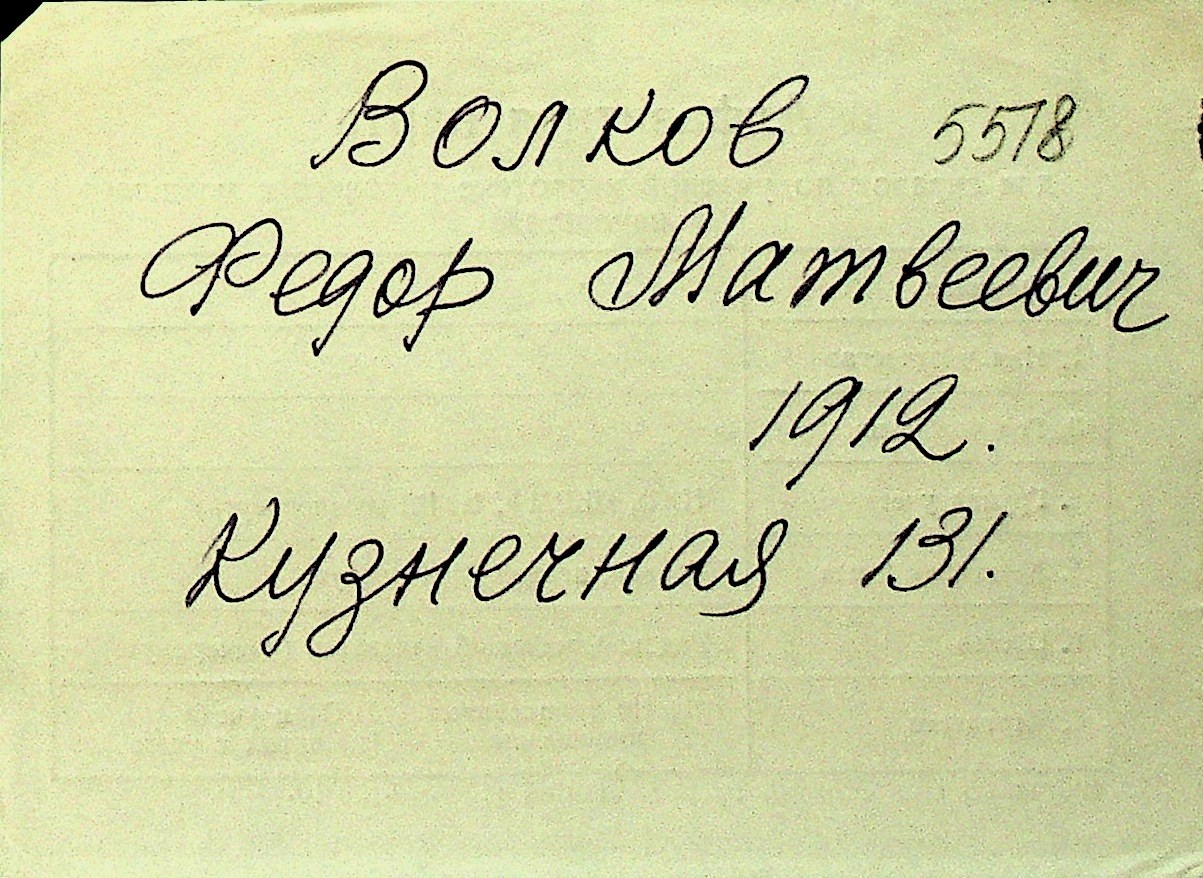 Волков 5578
Федор Матвеевич
1912.
Кузнечная 131.